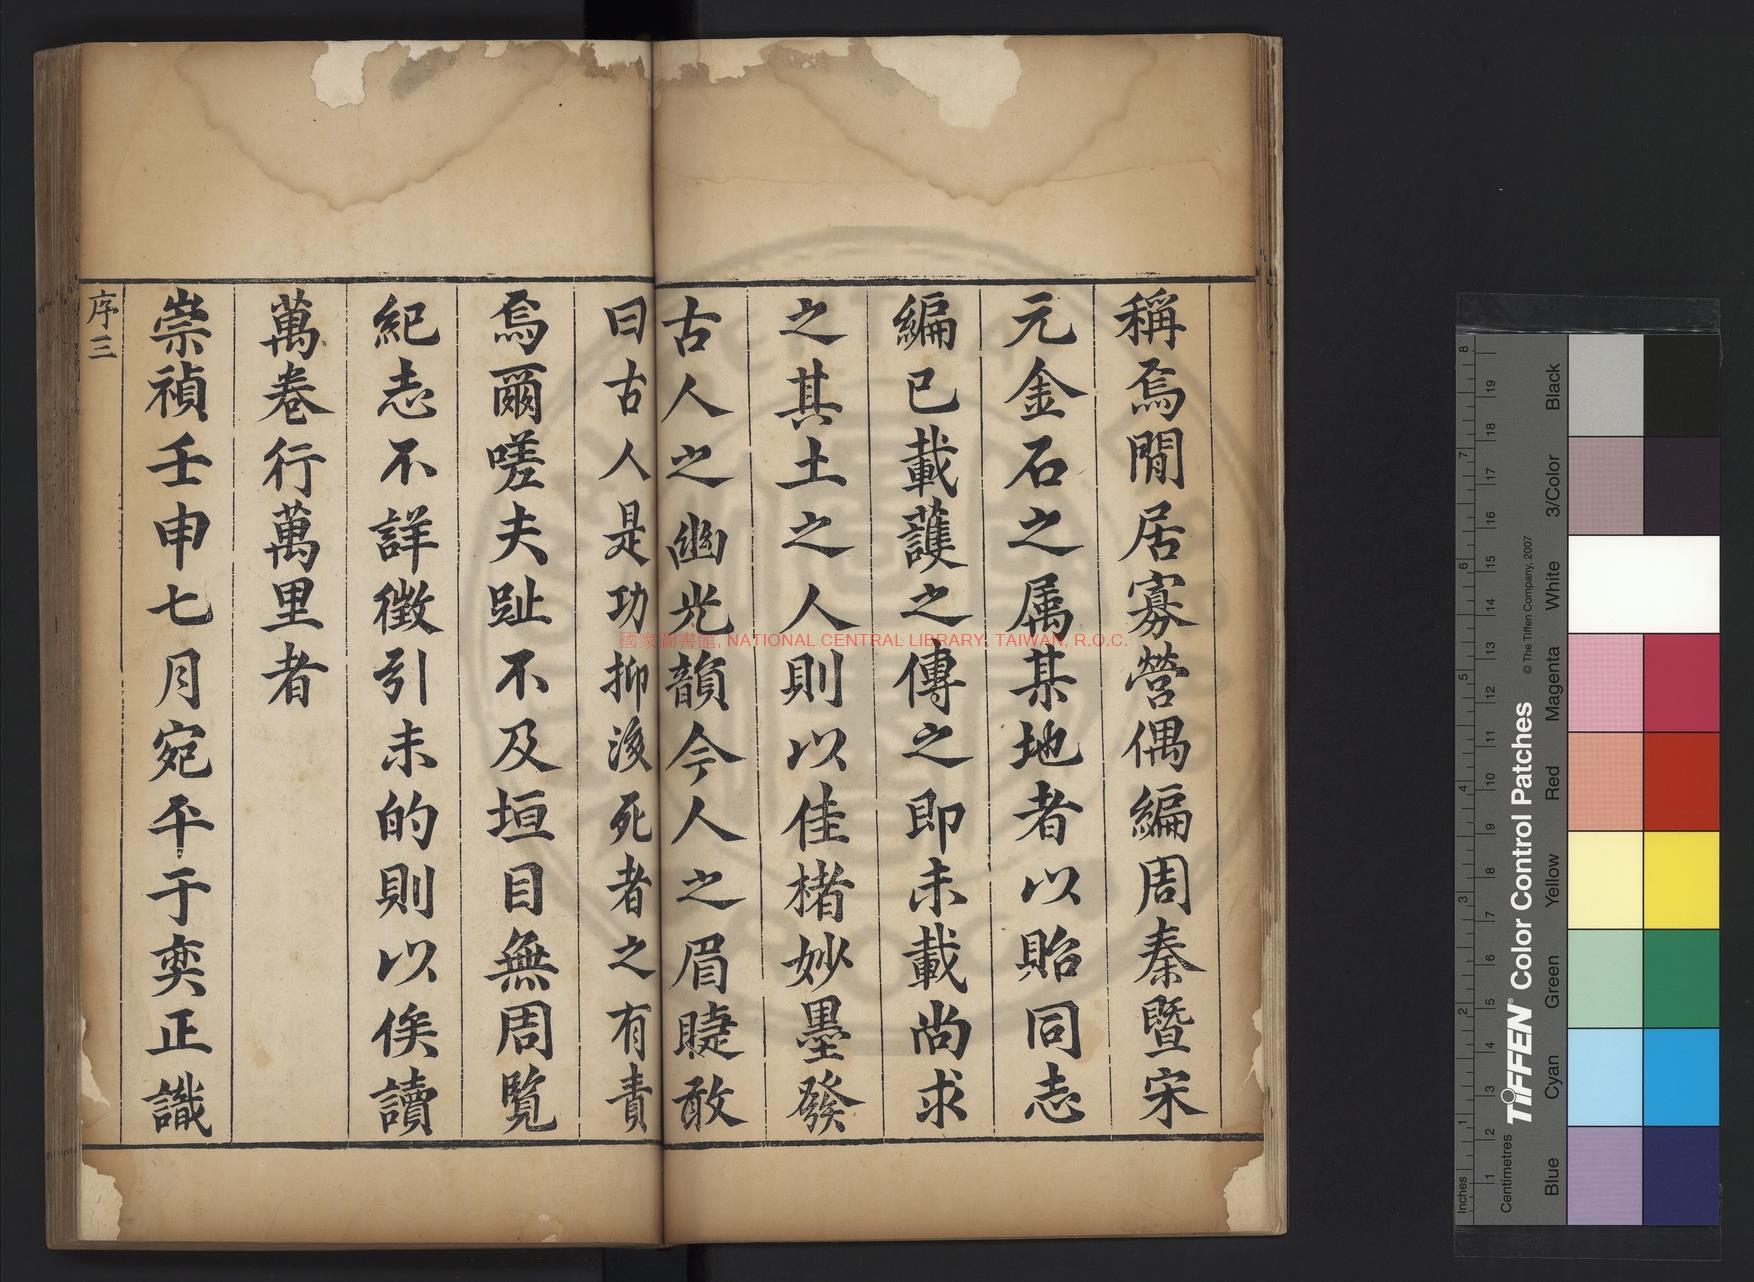 稱焉閒居寡營偶編周秦暨宋
元金石之属某地者以貽同志
編已載護之傳之即未載尚求
之其土之人則以佳楮妙墨發
古人之幽光韻今人之眉睫敢
曰古人是功抑後死者之有責
焉爾嗟夫趾不及垣目無周覽
紀志不詳徵引未的則以俟讀
萬卷行萬里者
崇禎壬申七月宛平于奕正識
序三
國家圖書館, NATIONAL CENTRAL LIBRARY, TAIWAN, R.O.C.
Inches
1 2 3 4 5 6 7 8
Centimetres
1 2 3 4 5 6 7 8 9 10 11 12 13 14 15 16 17 18 19
TIFFEN® Color Control Patches
© The Tiffen Company, 2007
Blue Cyan Green Yellow Red Magenta White 3/Color Black